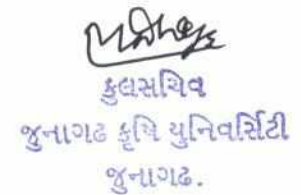 કુલસચિવ
જુનાગઢ કૃષિ યુનિવર્સિટી
જુનાગઢ.